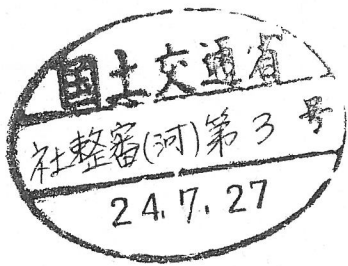 国土交通省
社整審(河)第3号
24.7.27